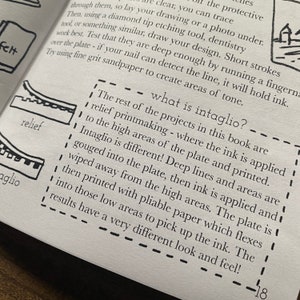 of the protective
through them, so lay your drawing or a photo under.
Then, using a diamond tip etching tool, dentistry
tool, or something similar, draw your design. Short strokes
work best. Test that they are deep enough by running a fingerna
over the plate - if your nail can detect the line, it will hold ink.
Try using fine grit sandpaper to create areas of tone.
felt
relief
aglio
what is intaglio?
The rest of the projects in this book are
relief printmaking - where the ink is applied
to the high areas of the plate and printed.
Intaglio is different! Deep lines and areas are
gouged into the plate, then ink is applied and
wiped away from the high areas. The plate is
then printed with pliable paper which flexes
into those low areas to pick up the ink. The
results have a very different look and feel!
18